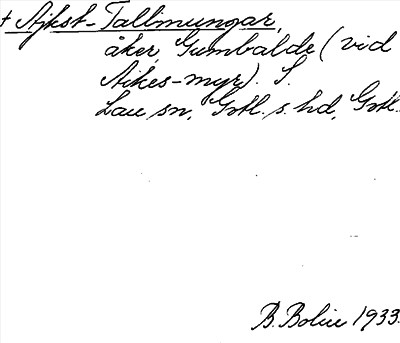 † Ajkst-Tallmungar,
åker, Gumbalde (vid
Aikes-myr). S.
Lau sn, Gotl. s. hd, Gotl.
B. Bolin 1933.